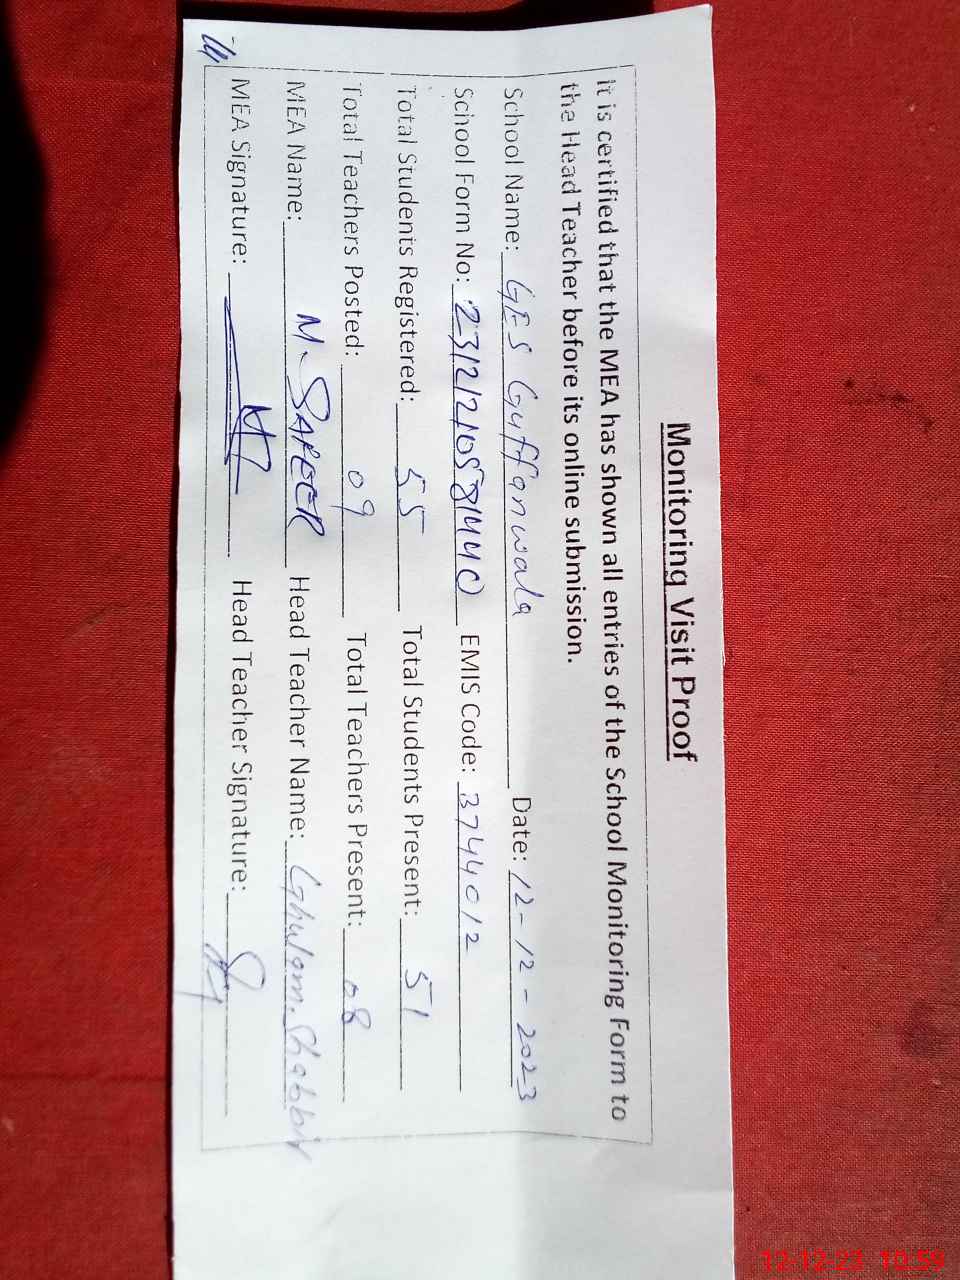 Monitoring Visit Proof
It is certified that the MEA has shown all entries of the School Monitoring Form to
the Head Teacher before its online submission.
School Name: GES Guffanwala Date: 12-12-2023
School Form No: EMIS Code: 3744012
Total Students Registered: 55 Total Students Present: 51
Total Teachers Posted: 09 Total Teachers Present: 08
MEA Name: M. SAFEER Head Teacher Name: Ghulam. Shabbir
MEA Signature: Head Teacher Signature:
12-12-23 10:59